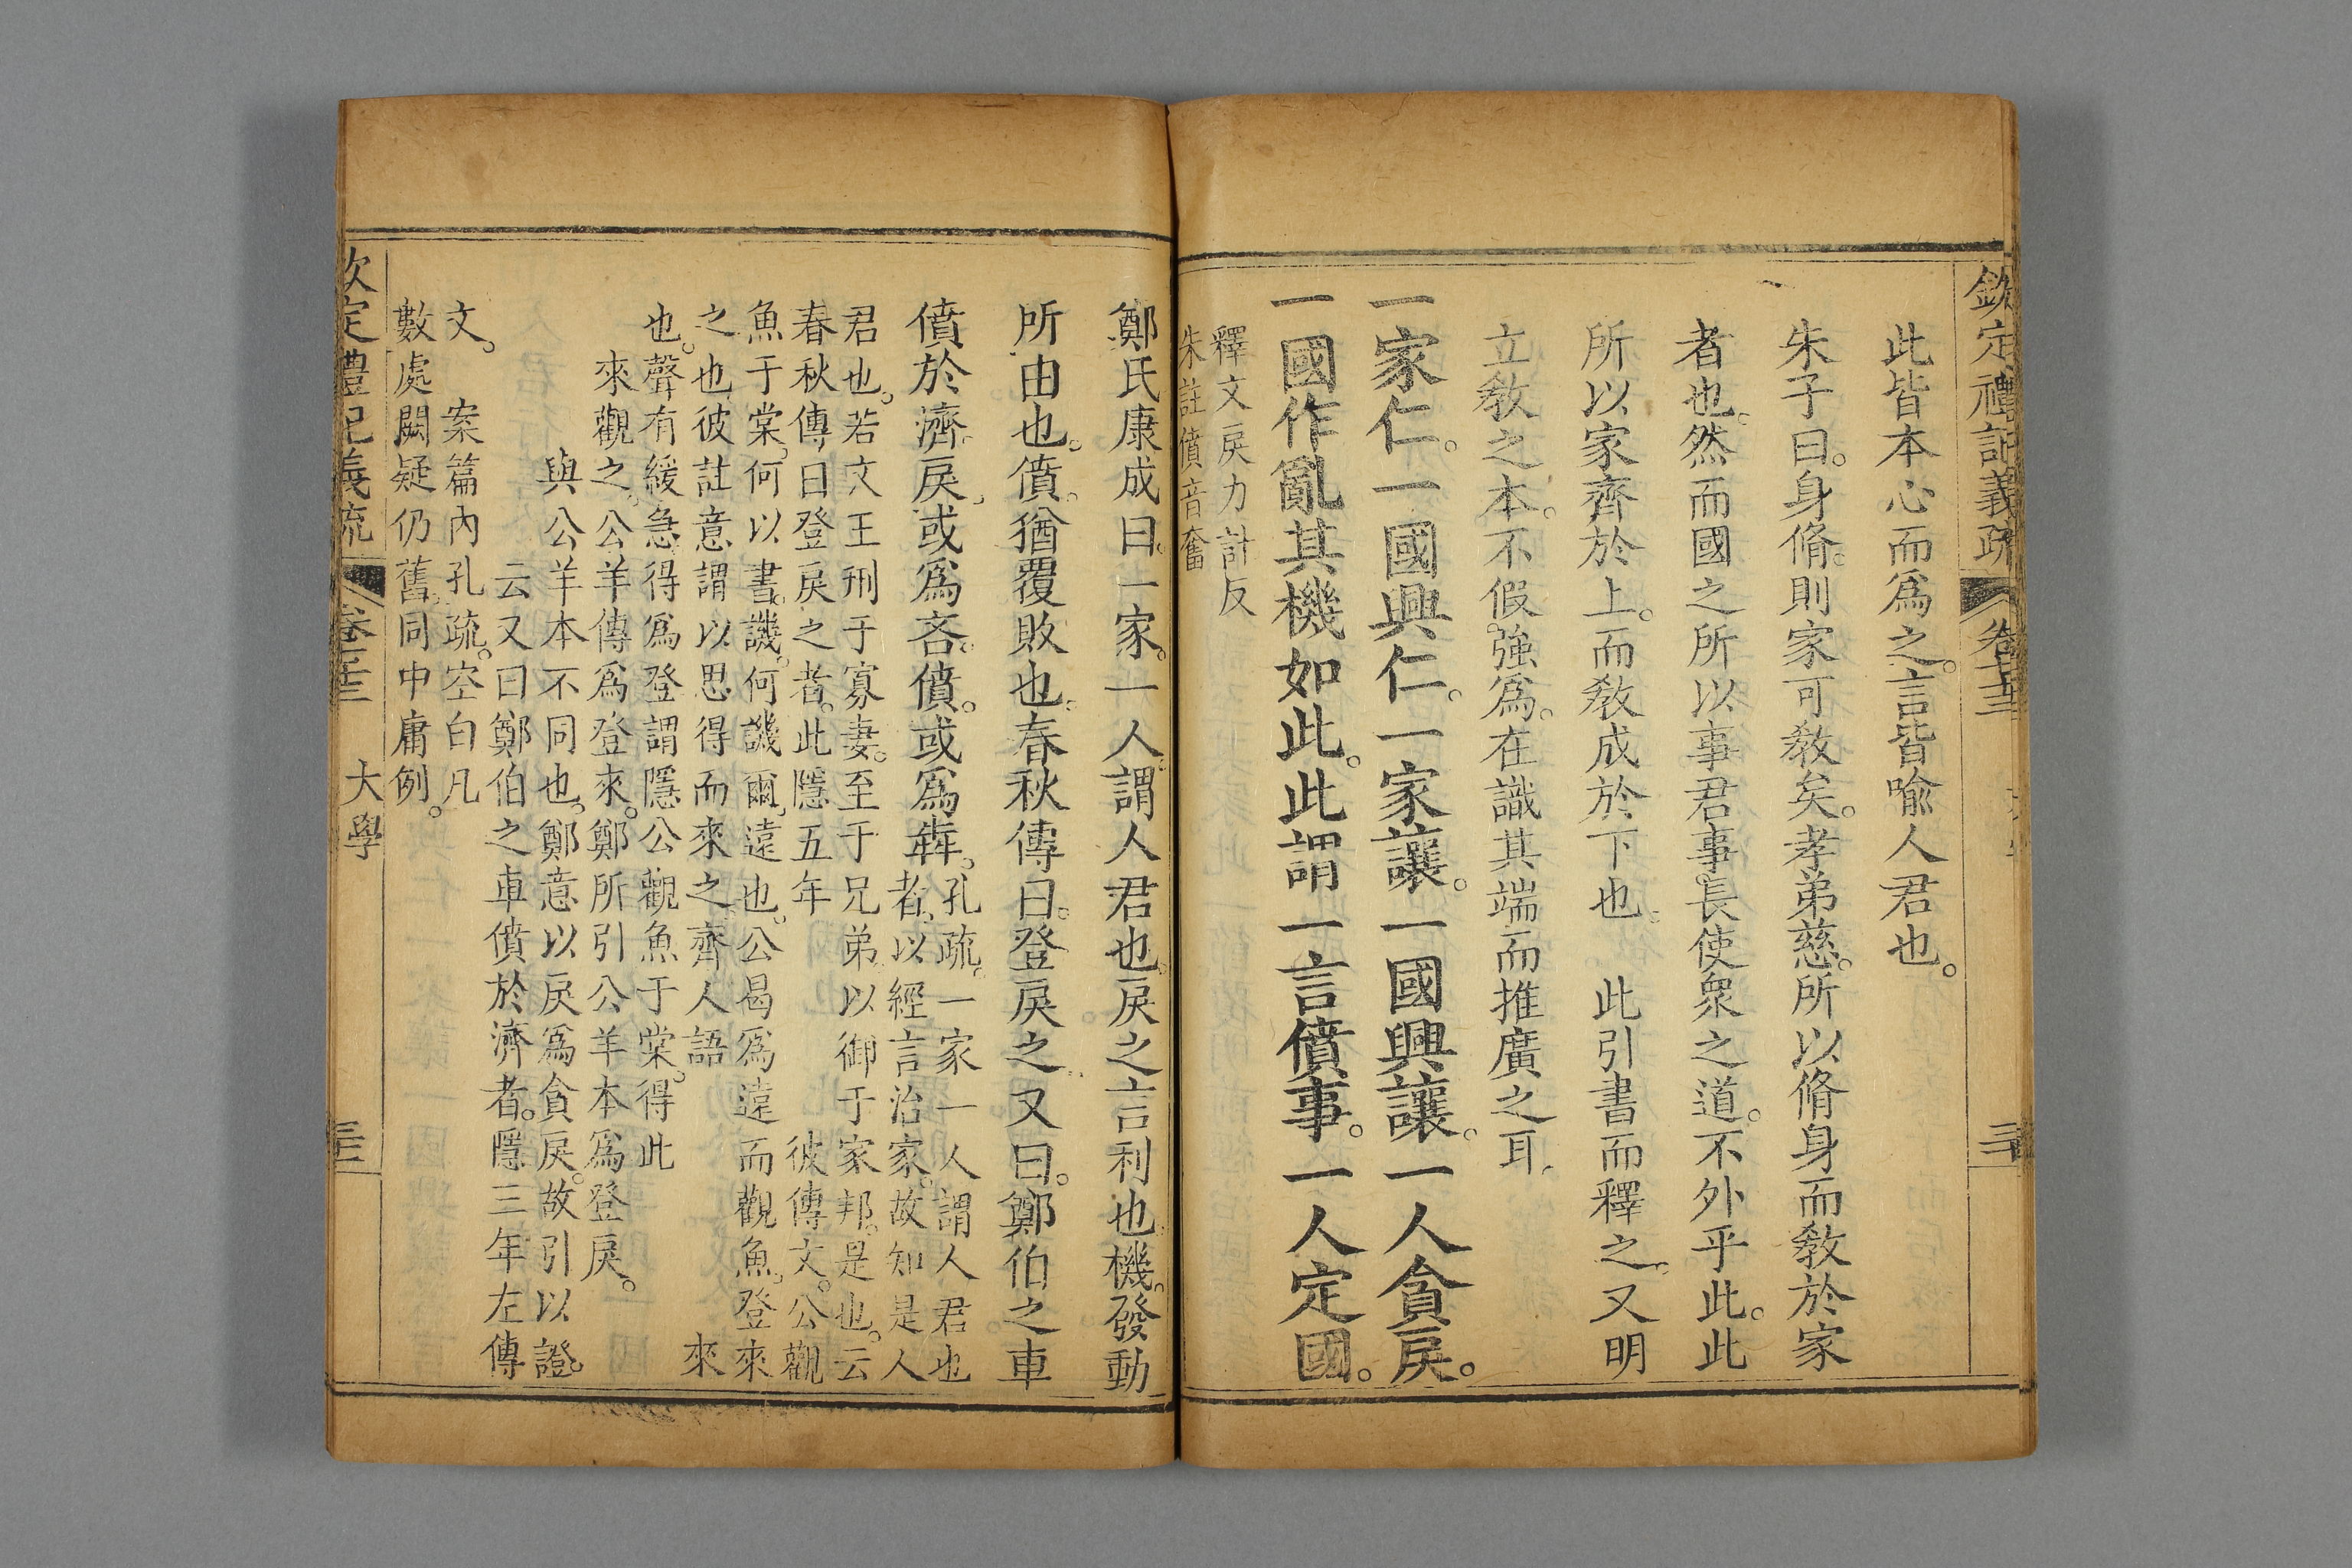 欽定禮記義疏 卷七十三
此皆本心而爲之。言皆喻人君也。
朱子曰。身脩。則家可敎矣。孝弟慈。所以脩身而敎於家
者也。然而國之所以事君事長使衆之道。不外乎此。此
所以家齊於上。而敎成於下也。 此引書而釋之。又明
立敎之本。不假强爲。在識其端而推廣之耳。
一家仁。一國興仁。一家讓。一國興讓。一人貪戾。
一國作亂其機如此。此謂一言僨事。一人定國。
釋文戾力計反
朱註僨音奮
鄭氏康成曰。一家。一人。謂人君也。戾之言利也。機。發動
所由也。僨。猶覆敗也。春秋傳曰。登戾之。又曰。鄭伯之車
僨於濟。戾。或爲吝。僨。或爲犇。
孔疏。一家一人謂人君也
者。以經言治家。故知是人
君也。若文王刑于寡妻。至于兄弟。以御于家邦。是也。云
春秋傳曰登戾之者。此隱五年 彼傳文。公觀
魚于棠。何以書。譏。何譏爾。遠也。公曷爲遠而觀魚。登來
之也彼註意謂以思得而來之。齊人語 來
也。聲有緩急得爲登謂隱公觀魚于棠。得此
來觀之。公羊傳爲登來。鄭所引公羊本爲登戾。
與公羊本不同也。鄭意以戾爲貪戾。故引以證。
云又曰鄭伯之車僨於濟者。隱三年左傳
文。 案篇內孔疏。空白凡
數處闕疑仍舊。同中庸例。
欽定禮記義疏 卷七十三 大學